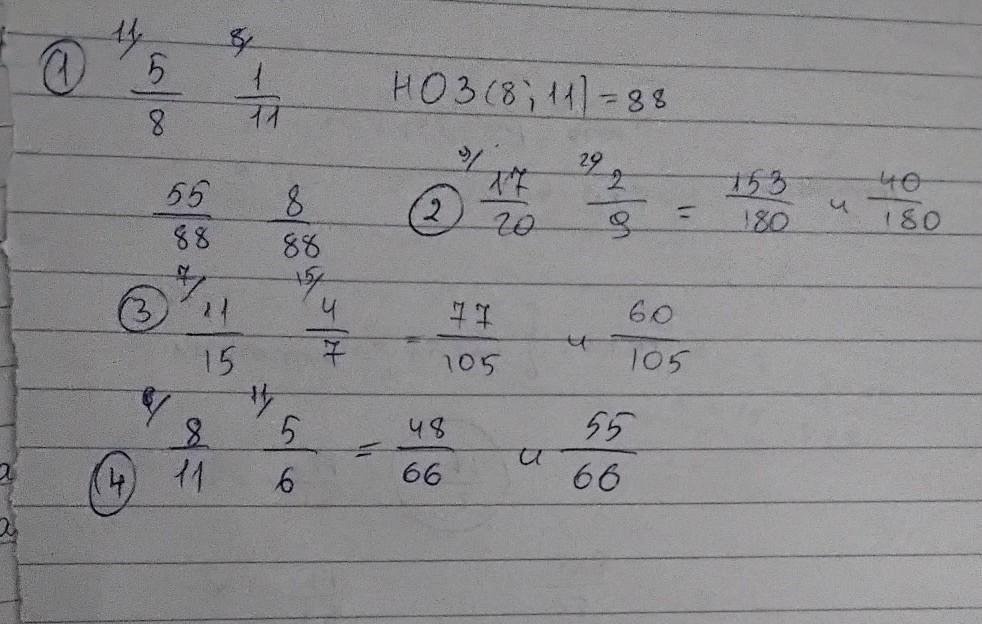 ① 11/ 5/8 8/ 1/11 НОЗ(8;11)=88
55/88 8/88
② 9/ 17/20 20 2/9 = 153/180 и 40/180
③ 7/ 11/15 15/ 4/7 = 77/105 и 60/105
④ 6/ 8/11 11/ 5/6 = 48/66 и 55/66